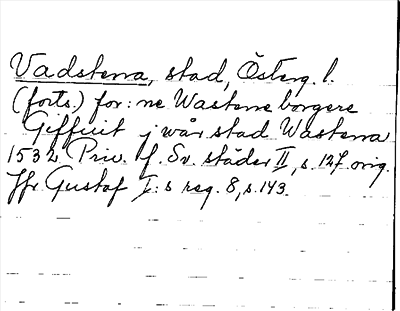 Vadstena, stad, Österg. l.
(forts.) for: ne Wastene borgere
Giffuit j wår stad Wastena
1532 Priv. f. Sv. städer II, s. 127 orig.
Jfr Gustaf I: s reg. 8, s. 143.